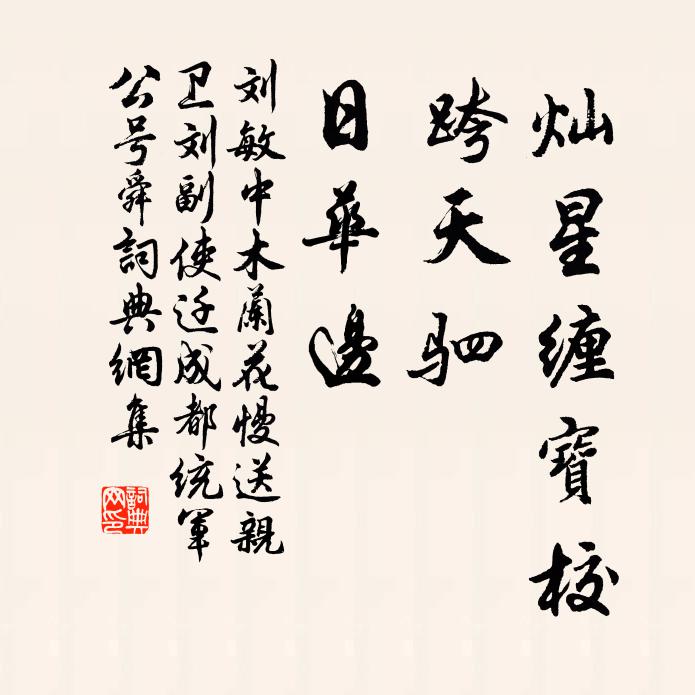 灿星缠寳校
跨天驷
日華邊
刘敏中木蘭花慢送親
卫刘副使迁成都统军
公号舜詞典網集
詞典网印